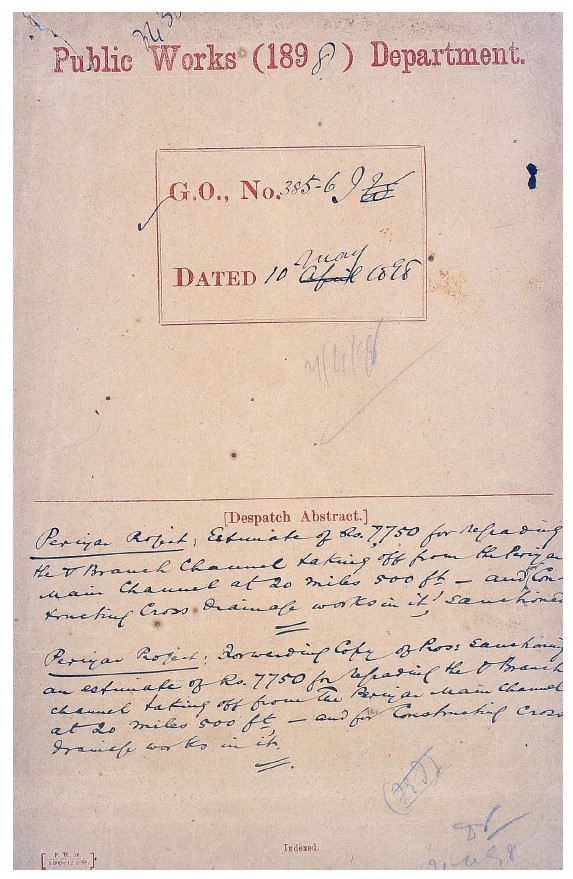 Public Works (1898) Department.
G.O., No. 385-6 I
DATED 10 May April 1898
[Despatch Abstract.]
Periyar Project; Estimate of Rs. 7750 for regrading
the V Branch Channel taking off from the Periyar
Main Channel at 20 miles 500 ft — and for Con-
structing Cross drainage works in it, Sanctioned
Periyar Project; Forwarding Copy of Pros: Sanctioning
an estimate of Rs. 7750 for regrading the V Branch
Channel taking off from the Periyar Main Channel
at 20 miles 500 ft — and for Constructing Cross
drainage works in it.
Indexed.